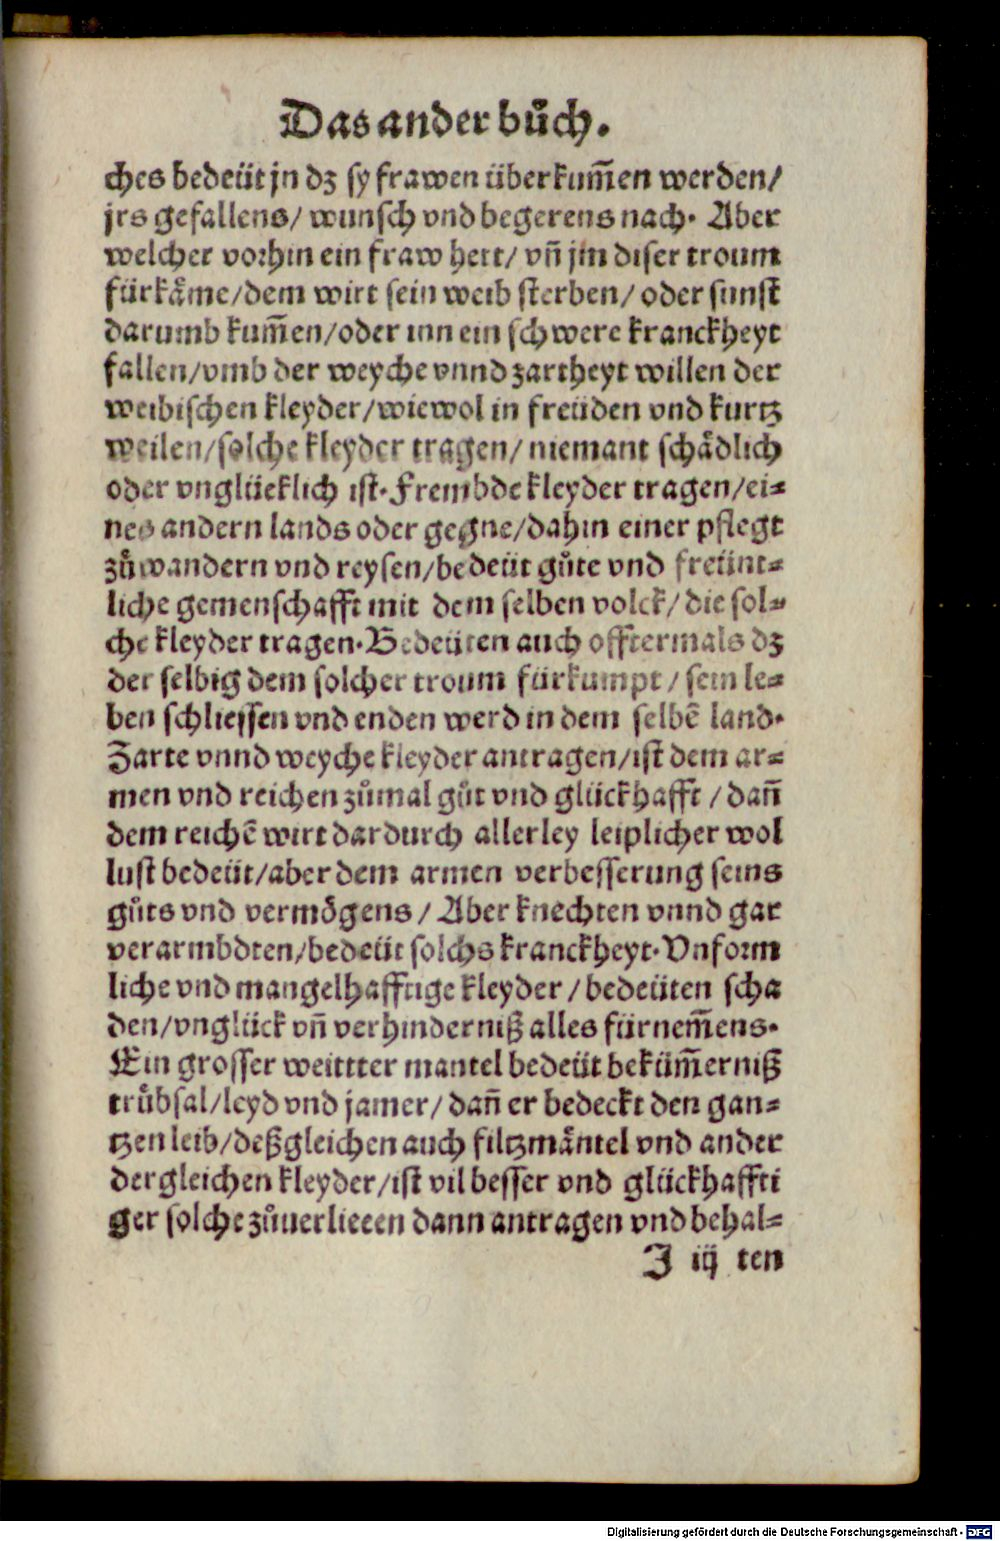 Das ander bůch.
ches bedeüt jn dz sy frawen überkum̄en werden/
jrs gefallens/ wunsch vnd begerens nach. Aber
welcher vorhin ein fraw hett/ vn̄ jm diser troum
fürkåme/dem wirt sein weib sterben/ oder sunst
darumb kum̄en/oder inn ein schwere kranckheyt
fallen/vmb der weyche vnnd zartheyt willen der
weibischen kleyder/wiewol in freüden vnd kurtz
weilen/solche kleyder tragen/ niemant schådlich
oder vnglücklich ist. Frembde kleyder tragen/ei⸗
nes andern lands oder gegne/dahin einer pflegt
zůwandern vnd reysen/bedeüt gůte vnd freünt⸗
liche gemenschafft mit dem selben volck/ die sol⸗
che kleyder tragen. Bedeüten auch offtermals dz
der selbig dem solcher troum fürkumpt/ sein le⸗
ben schliessen vnd enden werd in dem selbē land.
Zarte vnnd weyche kleyder antragen/ist dem ar⸗
men vnd reichen zůmal gůt vnd glückhafft / dan̄
dem reichē wirt dardurch allerley leiplicher wol
lust bedeüt/aber dem armen verbesserung seins
gůts vnd vermögens / Aber knechten vnnd gar
verarmbdten/bedeüt solchs kranckheyt. Vnform
liche vnd mangelhafftige kleyder / bedeüten scha
den/vnglück vn̄ verhinderniß alles fürnem̄ens.
Ein grosser weittter mantel bedeüt beküm̄erniß
trůbsal/leyd vnd jamer/ dan̄ er bedeckt den gan⸗
tzen leib/deßgleichen auch filtzmåntel vnd ander
dergleichen kleyder/ist vil besser vnd glückhaffti
ger solche zůuerlieren dann antragen vnd behal⸗
J iij ten
Digitalisierung gefördert durch die Deutsche Forschungsgemeinschaft - DFG